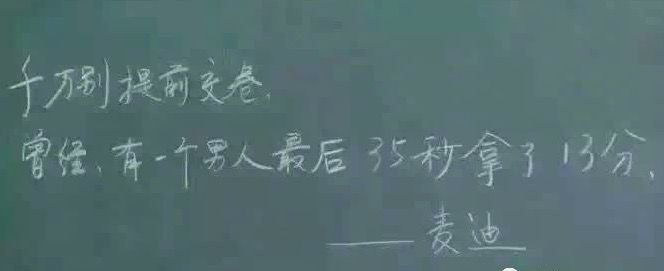 千万别提前交卷.
曾经、有一个男人最后35秒拿了13分.
——麦迪